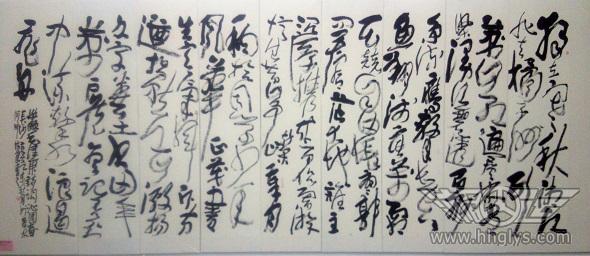 独立寒秋湘江
北去橘子洲头看
万山红遍层林尽染
漫江碧透百舸
争流鹰击长空
鱼翔浅底万类霜
天竞自由怅寥廓
问苍茫大地谁主
沉浮携来百侣曾游
忆往昔峥嵘岁月
稠恰同学少年
风华正茂书
生意气挥斥方
遒指点江山激扬
文字粪土当年
万户侯曾记否到
中流击水浪遏
飞舟
www.hnglys.com